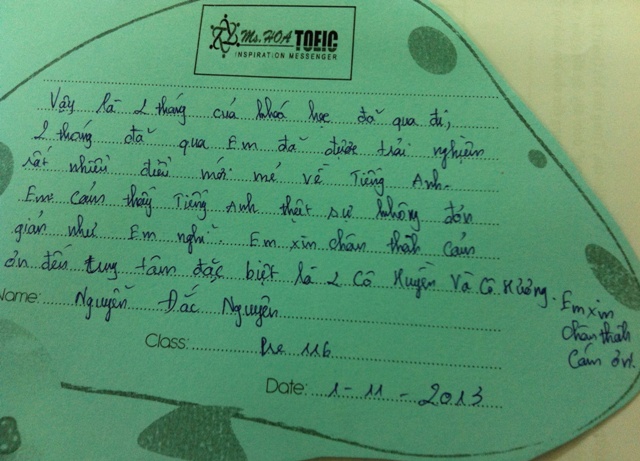 Ms. HOA TOEIC
INSPIRATION MESSENGER
Vậy là 2 tháng của khoá học đã qua đi,
2 tháng đã qua Em đã được trải nghiệm
rất nhiều điều mới mẻ về Tiếng Anh.
Em cảm thấy Tiếng Anh thật sự không đơn
giản như Em nghĩ. Em xin chân thành cảm
ơn đến trung tâm đặc biệt là 2 Cô Huyền Và Cô Hương.
Em xin
chân thành
Cảm ơn.
Name: Nguyễn Đắc Nguyên
Class: Pre 116
Date: 1 - 11 - 2013